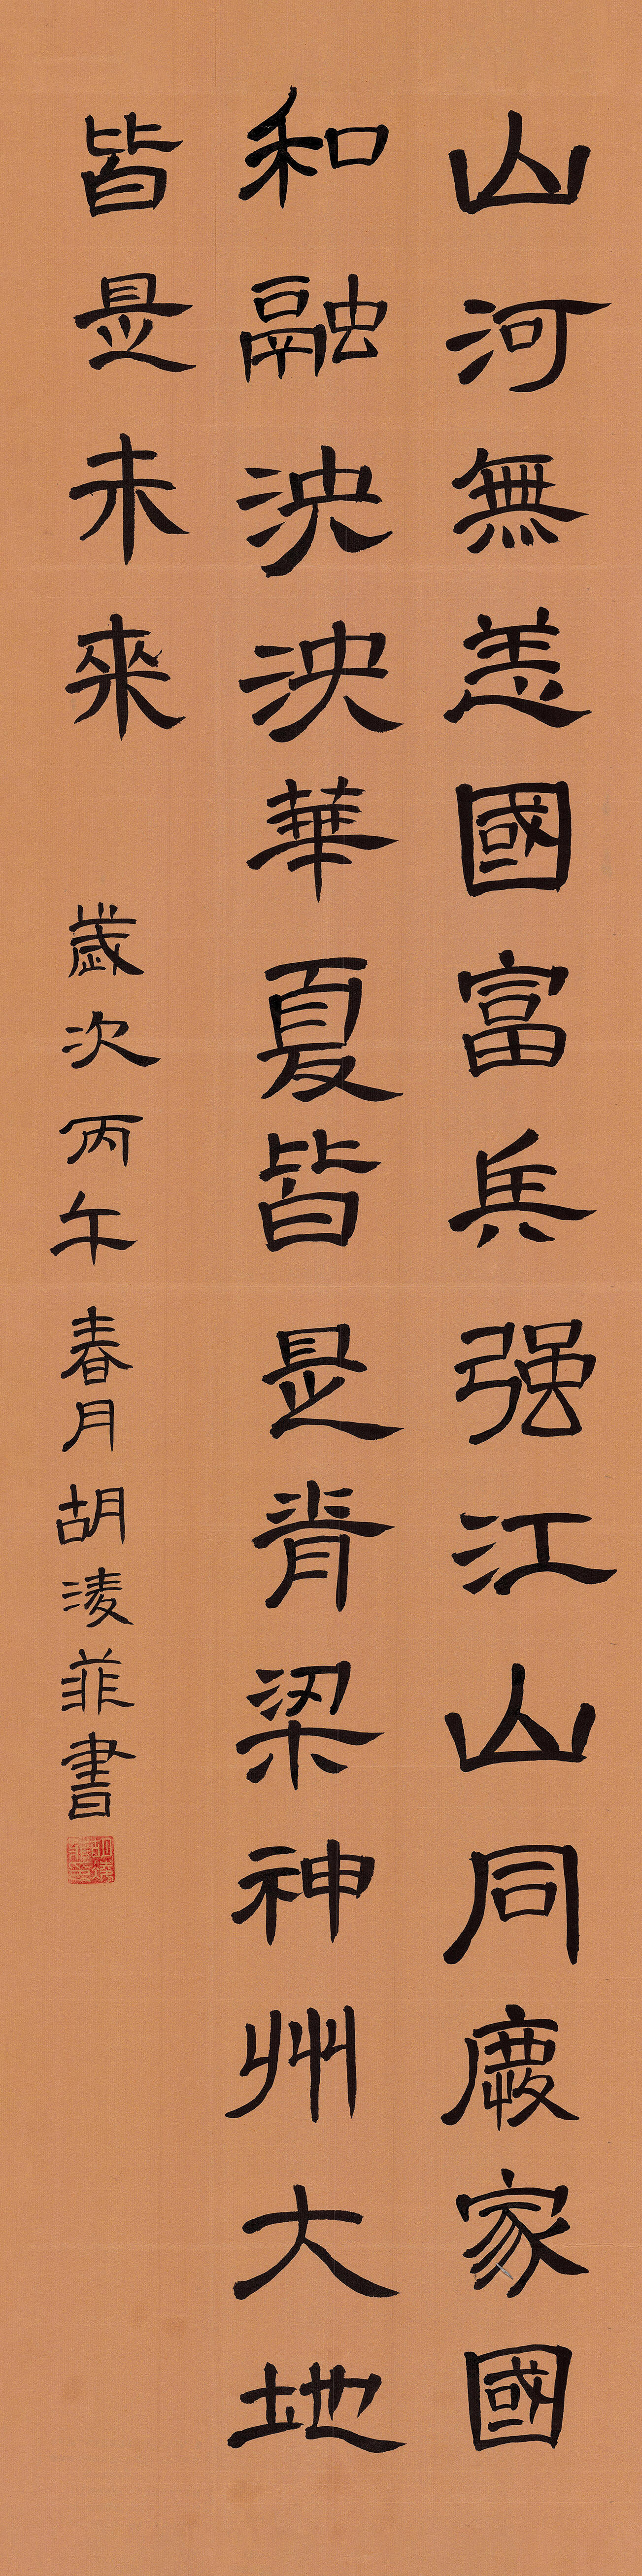 山河無恙國富兵强江山同慶家國
和融泱泱華夏皆是脊梁神州大地
皆是未來
歲次丙午春月胡淩菲書